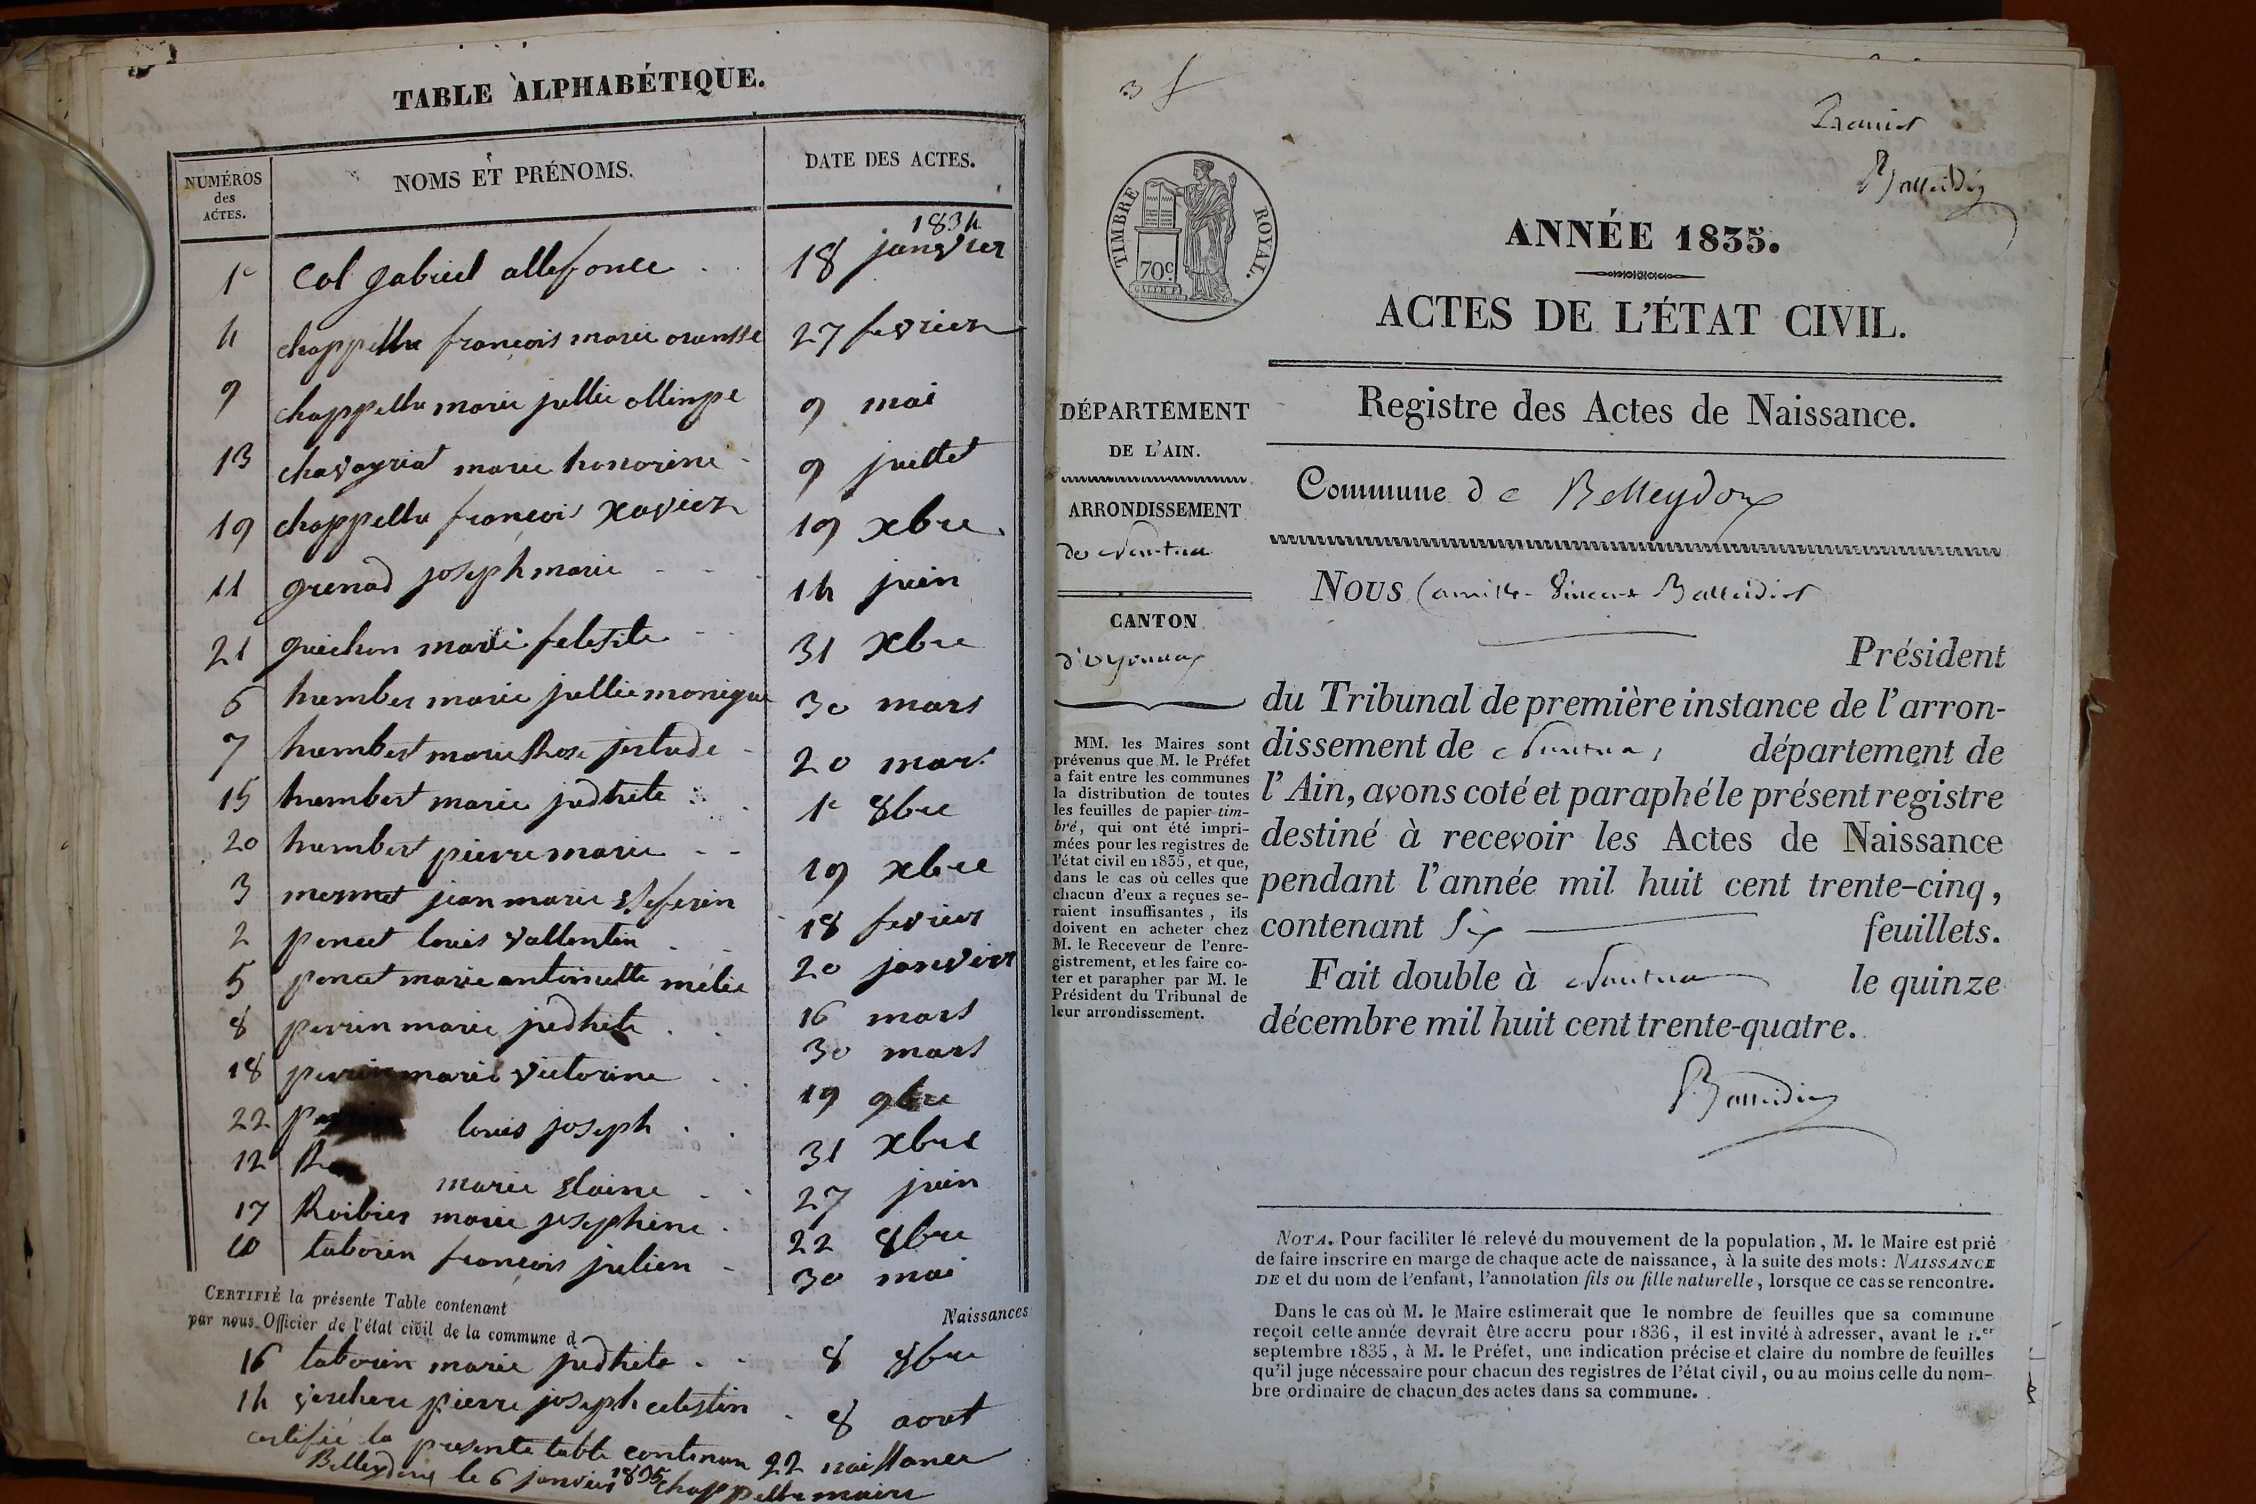 TABLE ALPHABÉTIQUE.
NUMÉROS des ACTES. NOMS ET PRÉNOMS. DATE DES ACTES.
1834
1e Col gabriel allefonce 18 janvier
4 chappellu françois marie 27 fevrier
9 chappellu marie jullie ollimpe 9 mai
13 chavoyriat marie honorine 9 juillet
19 chappellu françois xavier 19 xbre
11 grenad joseph marie 14 juin
21 guichon marie felesite 31 xbre
6 humber marie jullie monique 30 mars
7 humbert marie Rose jertude 20 mars
15 humbert marie judhite 1e 8bre
20 humbert pierre marie 19 xbre
3 mermet jean marie 18 fevrier
2 poncet louis vallentin 20 janvier
5 poncet marie antoinette mélie 16 mars
8 perrin marie judhite 30 mars
18 perrin marie victorine 19 9bre
22 louis joseph 31 xbre
12 marie 27 juin
17 Roibier marie josephine 22 8bre
10 taborin françois julien 30 mai
CERTIFIÉ la présente Table contenant Naissances
par nous Officier de l'état civil de la commune d
16 taborin marie judhite 8 8bre
14 verchere pierre joseph celestin 8 aout
certifié la presente table contenan 22 naissance
Belleydoux le 6 janvier 1835 chappellu maire
3 f
Premier
Balleidier
TIMBRE ROYAL.
70c.
ANNÉE 1835.
ACTES DE L'ÉTAT CIVIL.
Registre des Actes de Naissance.
Commune de Belleydoux
DÉPARTEMENT
DE L'AIN.
ARRONDISSEMENT
de Nantua
CANTON
d'Oyonnax
MM. les Maires sont
prévenus que M. le Préfet
a fait entre les communes
la distribution de toutes
les feuilles de papier tim-
bré, qui ont été impri-
mées pour les registres de
l'état civil en 1835, et que,
dans le cas où celles que
chacun d'eux a reçues se-
raient insuffisantes, ils
doivent en acheter chez
M. le Receveur de l'enre-
gistrement, et les faire co-
ter et parapher par M. le
Président du Tribunal de
leur arrondissement.
NOUS Camille Vincent Balleidier
Président
du Tribunal de première instance de l'arron-
dissement de Nantua, département de
l'Ain, avons coté et paraphé le présent registre
destiné à recevoir les Actes de Naissance
pendant l'année mil huit cent trente-cinq,
contenant Six feuillets.
Fait double à Nantua le quinze
décembre mil huit cent trente-quatre.
Balleidier
NOTA. Pour faciliter le relevé du mouvement de la population, M. le Maire est prié
de faire inscrire en marge de chaque acte de naissance, à la suite des mots: NAISSANCE
DE et du nom de l'enfant, l'annotation fils ou fille naturelle, lorsque ce cas se rencontre.
Dans le cas où M. le Maire estimerait que le nombre de feuilles que sa commune
reçoit cette année devrait être accru pour 1836, il est invité à adresser, avant le 1.er
septembre 1835, à M. le Préfet, une indication précise et claire du nombre de feuilles
qu'il juge nécessaire pour chacun des registres de l'état civil, ou au moins celle du nom-
bre ordinaire de chacun des actes dans sa commune.